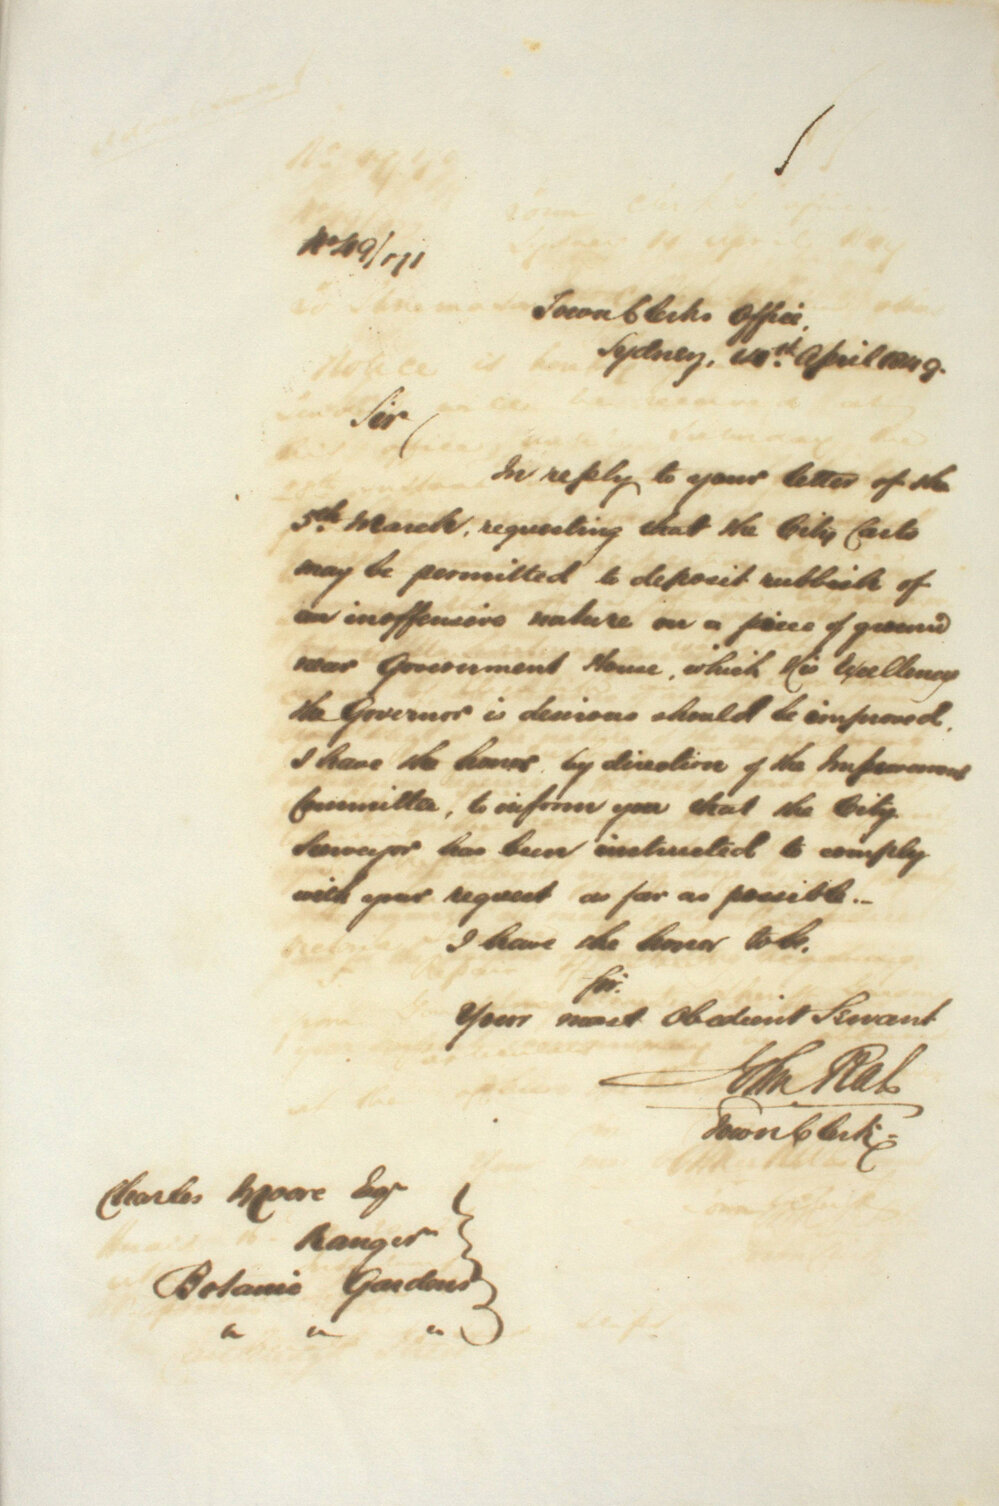 No 49/171
Town Clerks Office,
Sydney, 14th April 1849.
Sir
In reply to your letter of the
5th March, requesting that the City Carts
may be permitted to deposit rubbish of
an inoffensive nature on a piece of ground
near Government House, which His Excellency
the Governor is desirous should be improved,
I have the honor, by direction of the Improvement
Committee, to inform you that the City
Surveyor has been instructed to comply
with your request as far as possible..
I have the honor to be,
Sir.
Your most Obedient Servant
John Rae
Town Clerk
Charles Moore Esqr
Ranger
Botanic Gardens
" " "